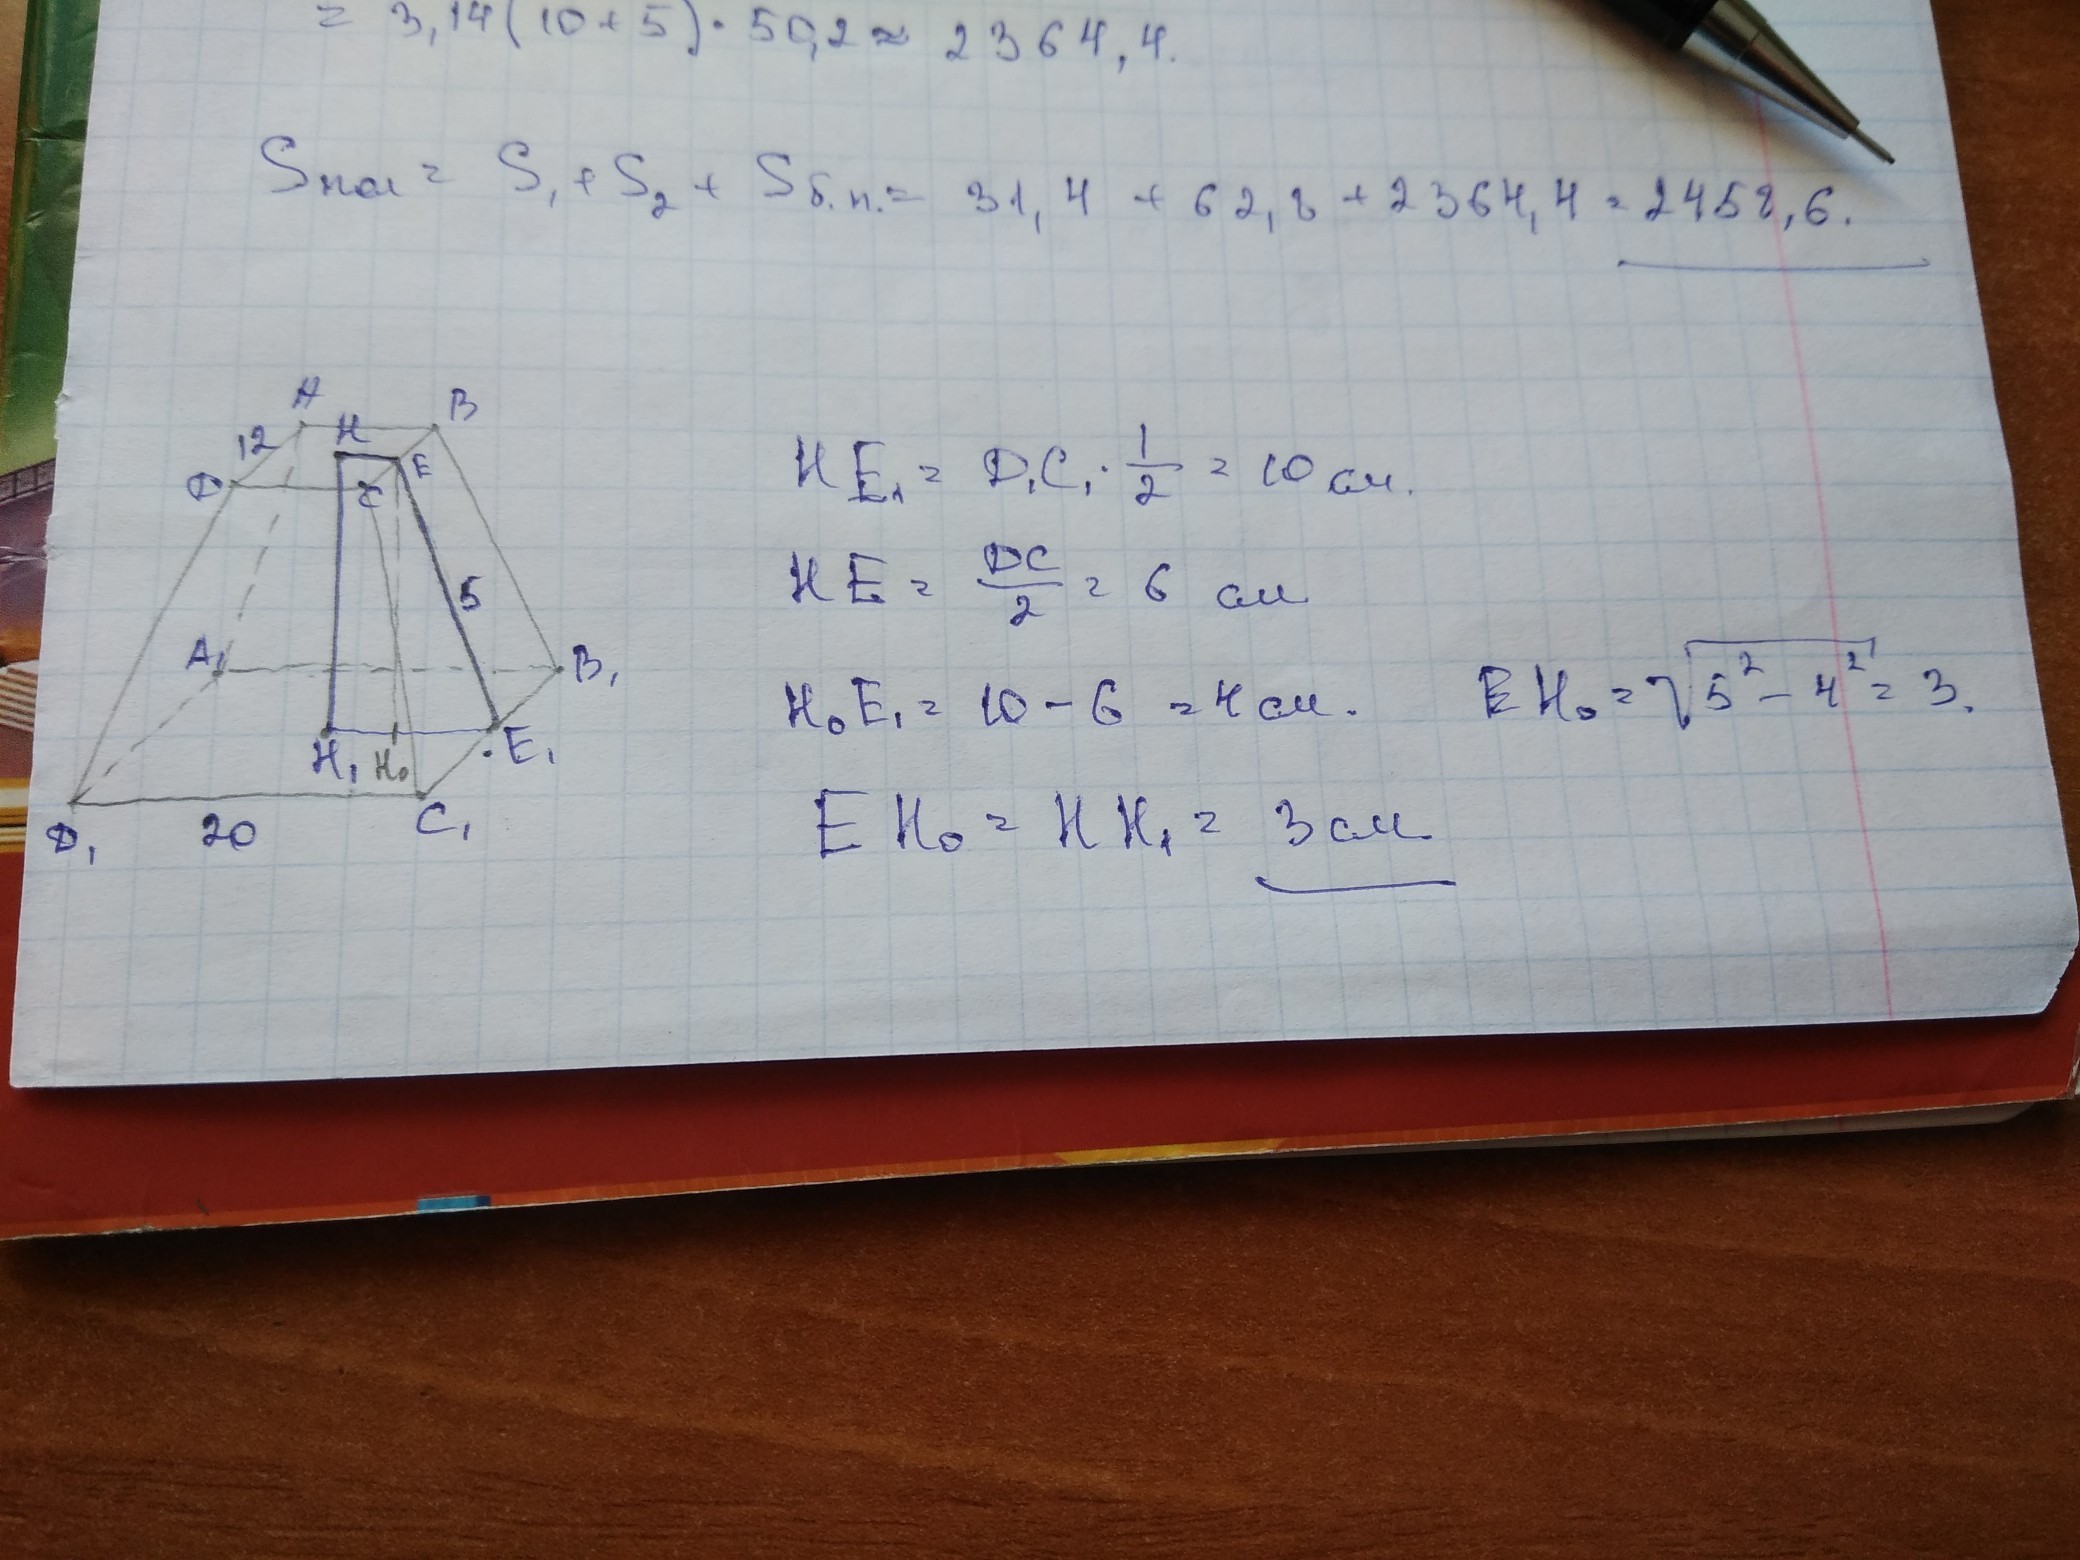 = 3,14(10+5)·50,2≈ 2364,4.
Sпол = S₁ + S₂ + Sб.п.= 31,4 + 62,8 + 2364,4 = 2458,6.
A
B
H
12
E
D
C
5
A₁
B₁
H₁ H₀
E₁
D₁
20
C₁
HE₁ = D₁C₁·1/2 = 10 см.
HE = DC/2 = 6 см
H₀E₁ = 10 - 6 = 4 см. EH₀ = √5² - 4² = 3.
EH₀ = HH₁ = 3 см